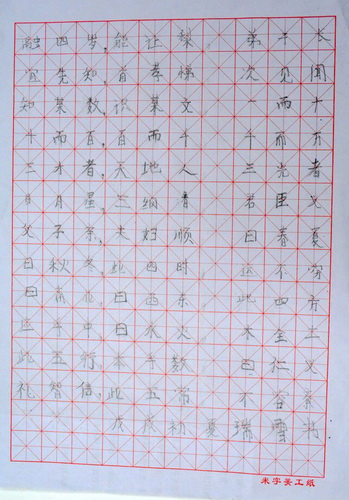 融四岁,能让梨。弟于长
宜先知,首孝悌,次见闻
知某数,识某文。一而十
十而百,百而千,千而万
三才者,天地人。三光者
日月星,三纲者,君臣义
父子亲,夫妇顺。曰春夏
曰秋冬,此四时,运不穷
曰南北,曰西东,此四方
应乎中。曰水火,木金土
此五行,本乎数。曰仁义
礼智信,此五常,不容紊
戊戌初夏 瑞雪
米字美工纸